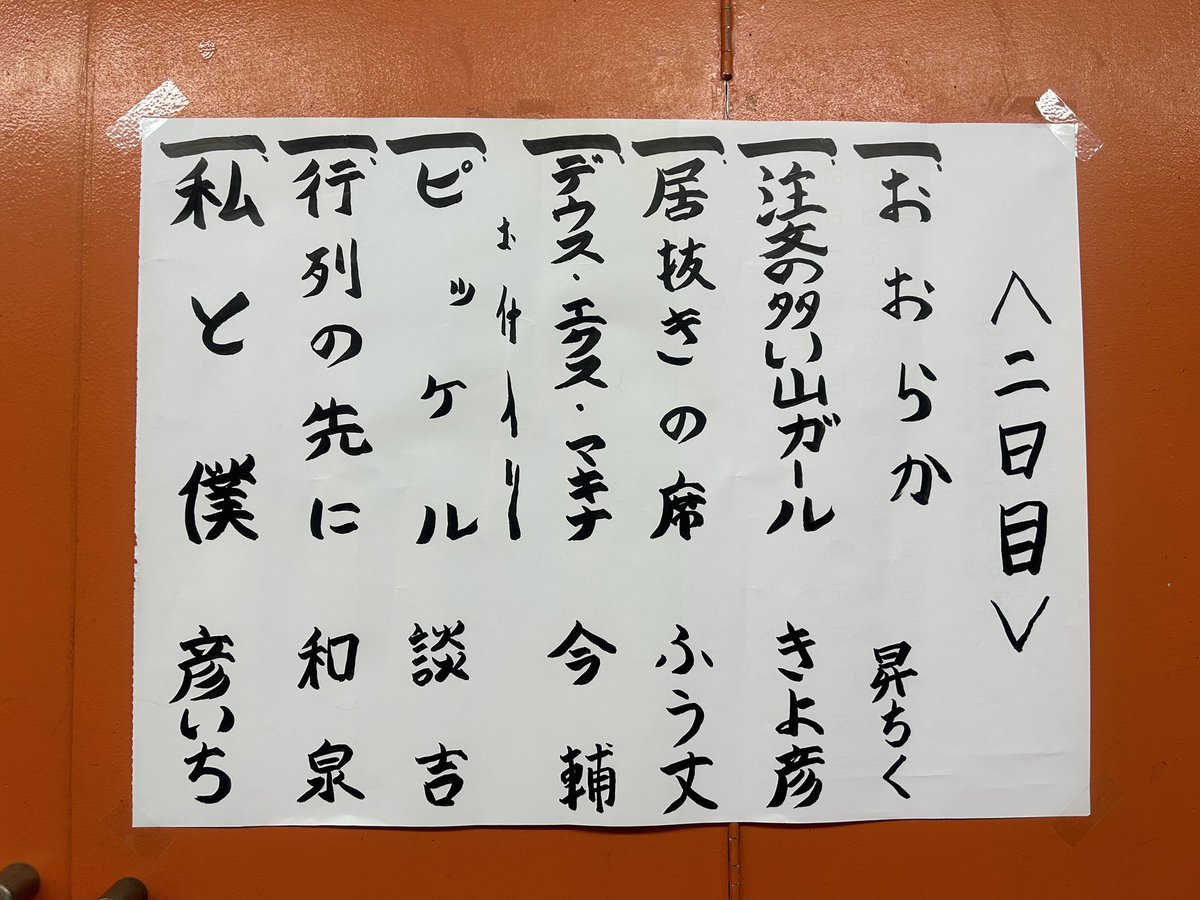 〈二日目〉
一、おおらか 昇ちく
一、注文の多い山ガール きよ彦
一、居抜きの席 ふう丈
一、デウス・エクス・マキナ 今輔
お仲入り
一、ピッケル 談吉
一、行列の先に 和泉
一、私と僕 彦いち